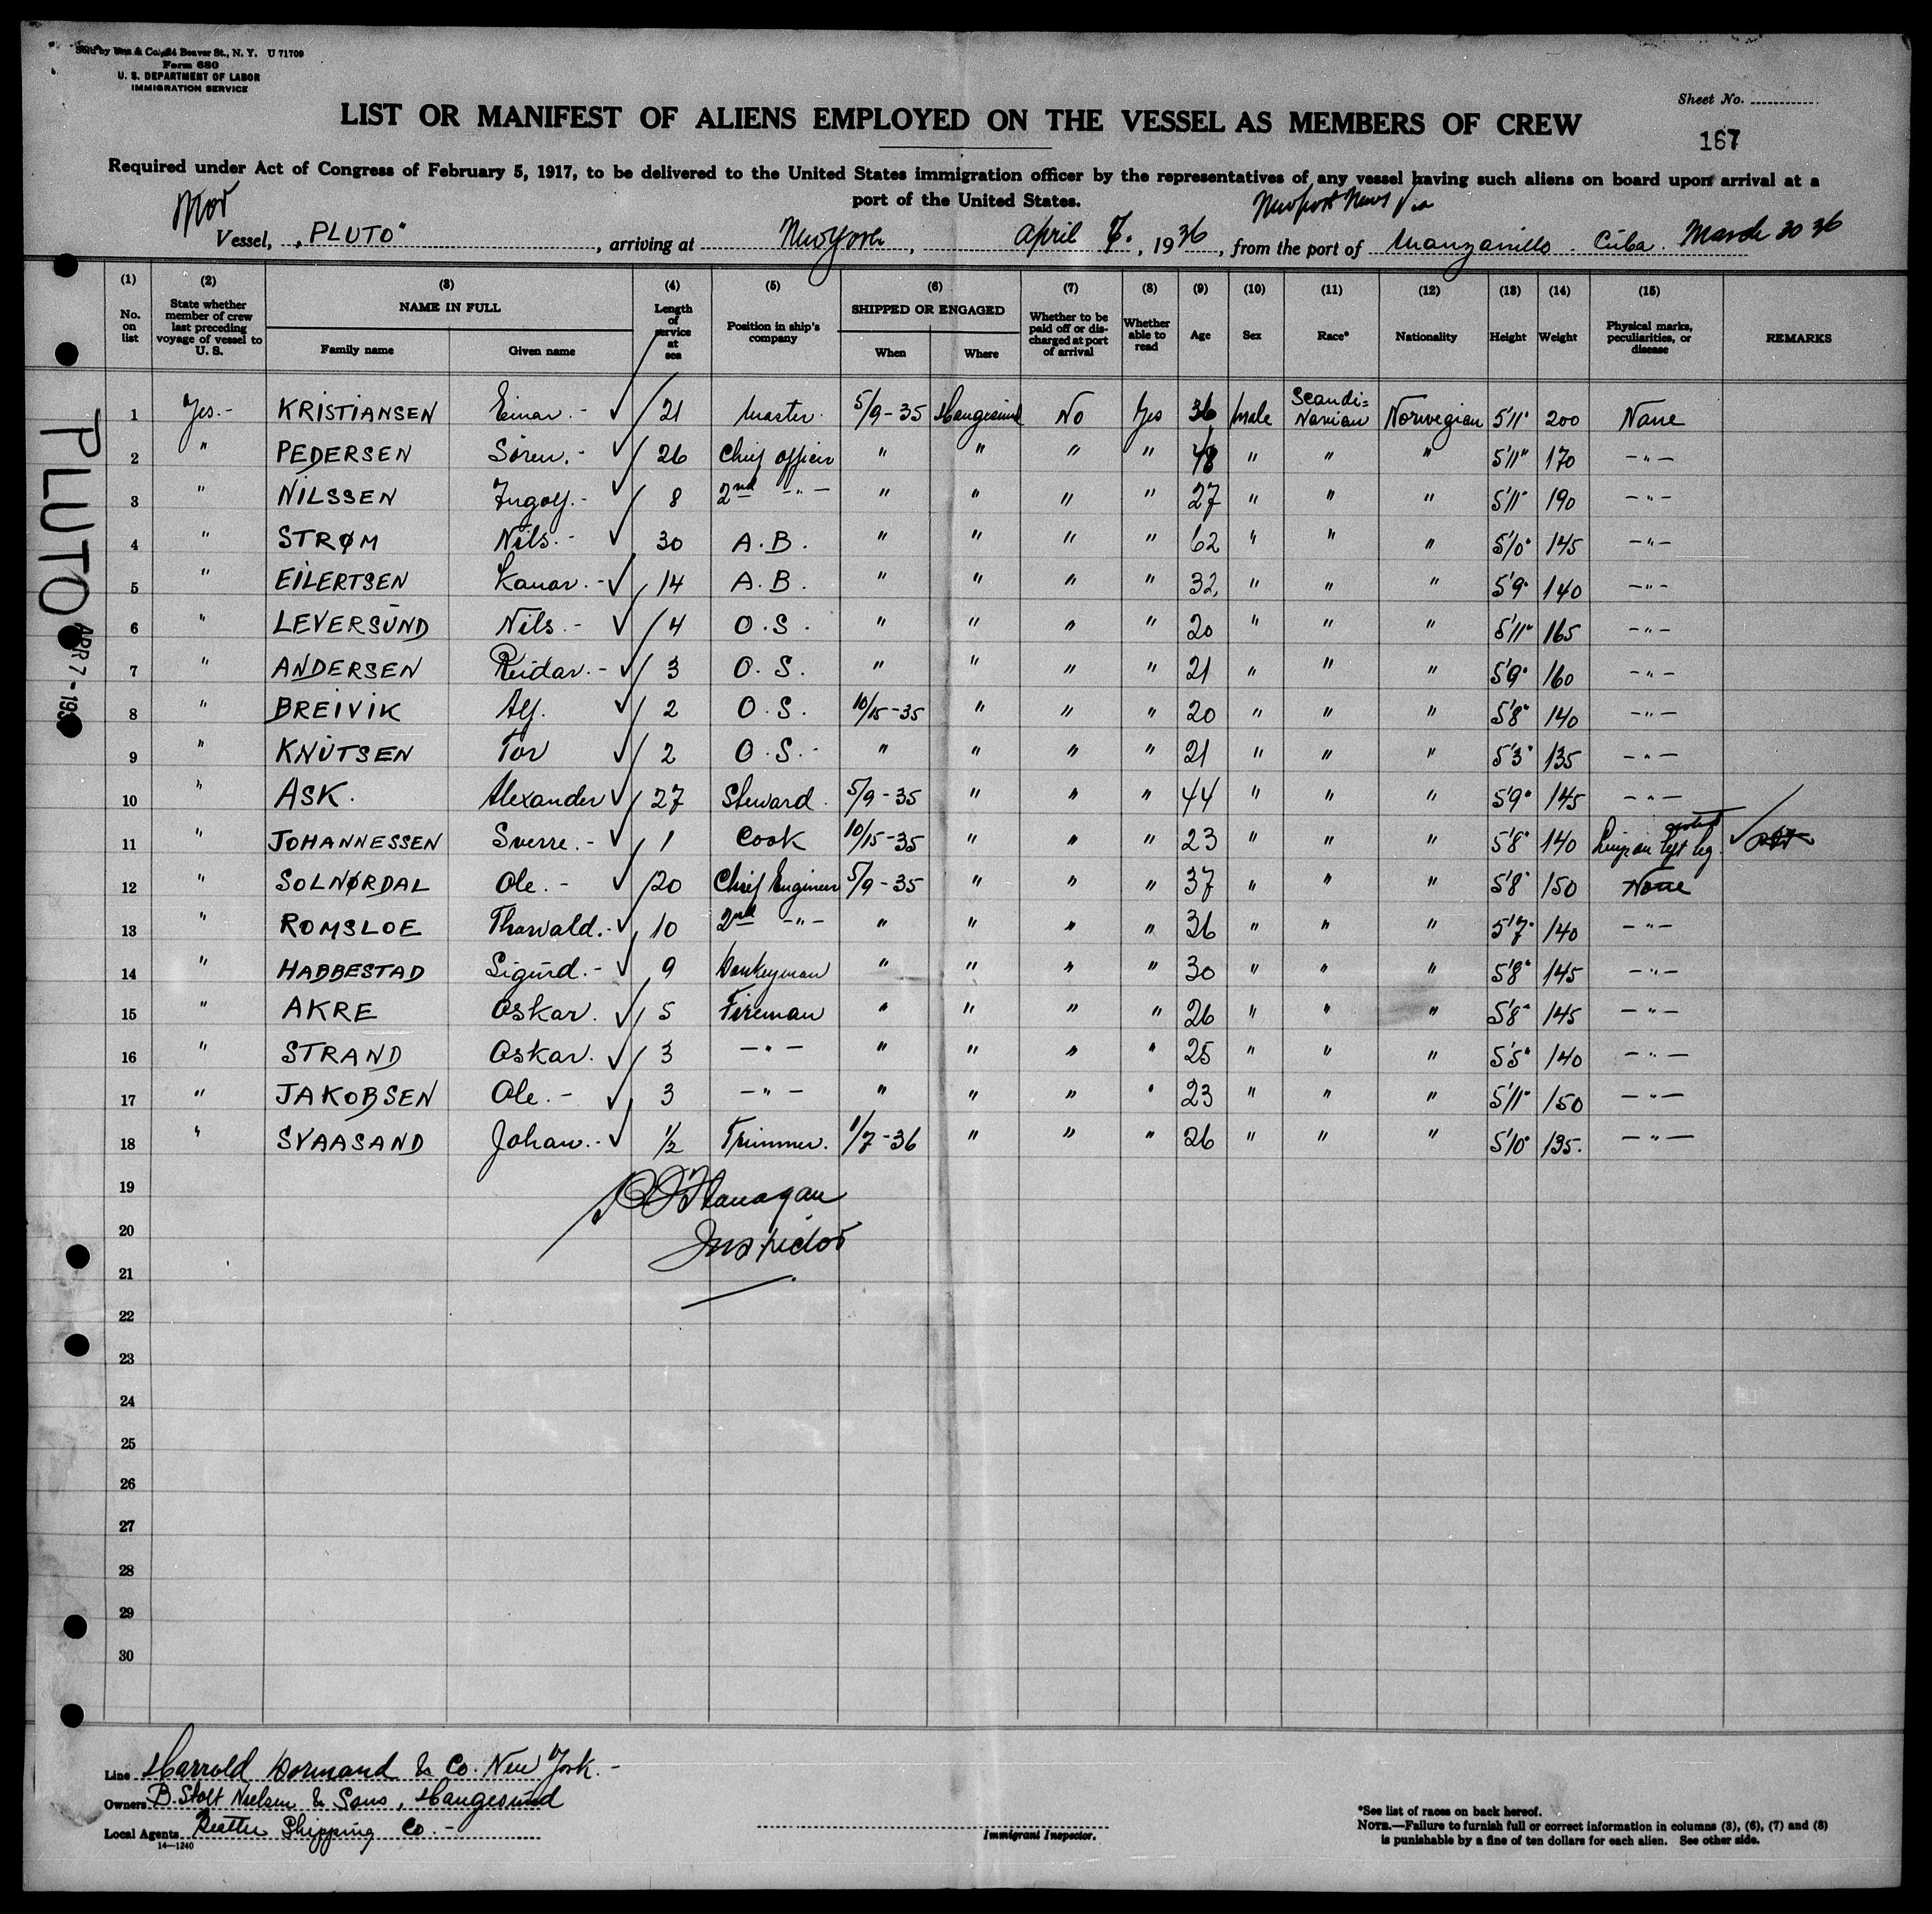 Sold by & Co. 24 Beaver St., N. Y. U 71709
Form 680
U. S. DEPARTMENT OF LABOR
IMMIGRATION SERVICE
Sheet No.
LIST OR MANIFEST OF ALIENS EMPLOYED ON THE VESSEL AS MEMBERS OF CREW
167
Required under Act of Congress of February 5, 1917, to be delivered to the United States immigration officer by the representatives of any vessel having such aliens on board upon arrival at a
port of the United States.
Nor Newport News Va
Vessel, "PLUTO", arriving at New York, April 7., 1936, from the port of Manzanillo - Cuba. March 30 36
(1) (2) (3) (4) (5) (6) (7) (8) (9) (10) (11) (12) (13) (14) (15)
No. on list State whether member of crew last preceding voyage of vessel to U. S. NAME IN FULL Family name Given name Length of service at sea Position in ship's company SHIPPED OR ENGAGED When Where Whether to be paid off or discharged at port of arrival Whether able to read Age Sex Race* Nationality Height Weight Physical marks, peculiarities, or disease REMARKS
1 Yes.- KRISTIANSEN Einar.- ✓ 21 Master. 5/9-35 Haugesund No Yes 36 Male Scandi=Navian Norwegian 5'11" 200 None
2 " PEDERSEN Sören.- ✓ 26 Chief officer " " " " 48 " " " 5'11" 170 -"-
3 " NILSSEN Ingolf.- ✓ 8 2nd -"- " " " " 27 " " " 5'11" 190 -"-
4 " STRØM Nils.- ✓ 30 A.B. " " " " 62 " " " 5'10" 145 -"-
5 " EILERTSEN Kanar.- ✓ 14 A.B. " " " " 32 " " " 5'9" 140 -"-
6 " LEVERSUND Nils.- ✓ 4 O.S. " " " " 20 " " " 5'11" 165 -"-
7 " ANDERSEN Reidar.- ✓ 3 O.S. " " " " 21 " " " 5'9" 160 -"-
8 " BREIVIK Alf. ✓ 2 O.S. 10/15-35 " " " 20 " " " 5'8" 140 -"-
9 " KNUTSEN Tor ✓ 2 O.S.- " " " " 21 " " " 5'3" 135 -"-
10 " ASK. Alexander ✓ 27 Steward. 5/9-35 " " " 44 " " " 5'9" 145 -"-
11 " JOHANNESSEN Sverre.- ✓ 1 Cook 10/15-35 " " " 23 " " " 5'8" 140 Limp on left leg. ✓
12 " SOLNØRDAL Ole.- ✓ 20 Chief Engineer 5/9-35 " " " 37 " " " 5'8" 150 None
13 " ROMSLOE Thorvald.- ✓ 10 2nd -"- " " " " 36 " " " 5'7" 140 -"-
14 " HABBESTAD Sigurd.- ✓ 9 Donkeyman " " " " 30 " " " 5'8" 145 -"-
15 " AKRE Oskar. ✓ 5 Fireman " " " " 26 " " " 5'8" 145 -"-
16 " STRAND Oskar. ✓ 3 -"- " " " " 25 " " " 5'5" 140 -"-
17 " JAKOBSEN Ole.- ✓ 3 -"- " " " " 23 " " " 5'11" 150 -"-
18 " SVAASAND Johan.- ✓ 1/2 Trimmer. 1/7-36 " " " 26 " " " 5'10" 135. -"-
19
Flanagan
20
Inspector
21
22
23
24
25
26
27
28
29
30
PLUTO
APR 7 - 193
Line Harrold Dormand & Co. New York.-
Owners B. Stolt Nielsen & Sons, Haugesund
Local Agents Shipping Co.-
14-1240
Immigrant Inspector.
*See list of races on back hereof.
NOTE.—Failure to furnish full or correct information in columns (3), (6), (7) and (8)
is punishable by a fine of ten dollars for each alien. See other side.